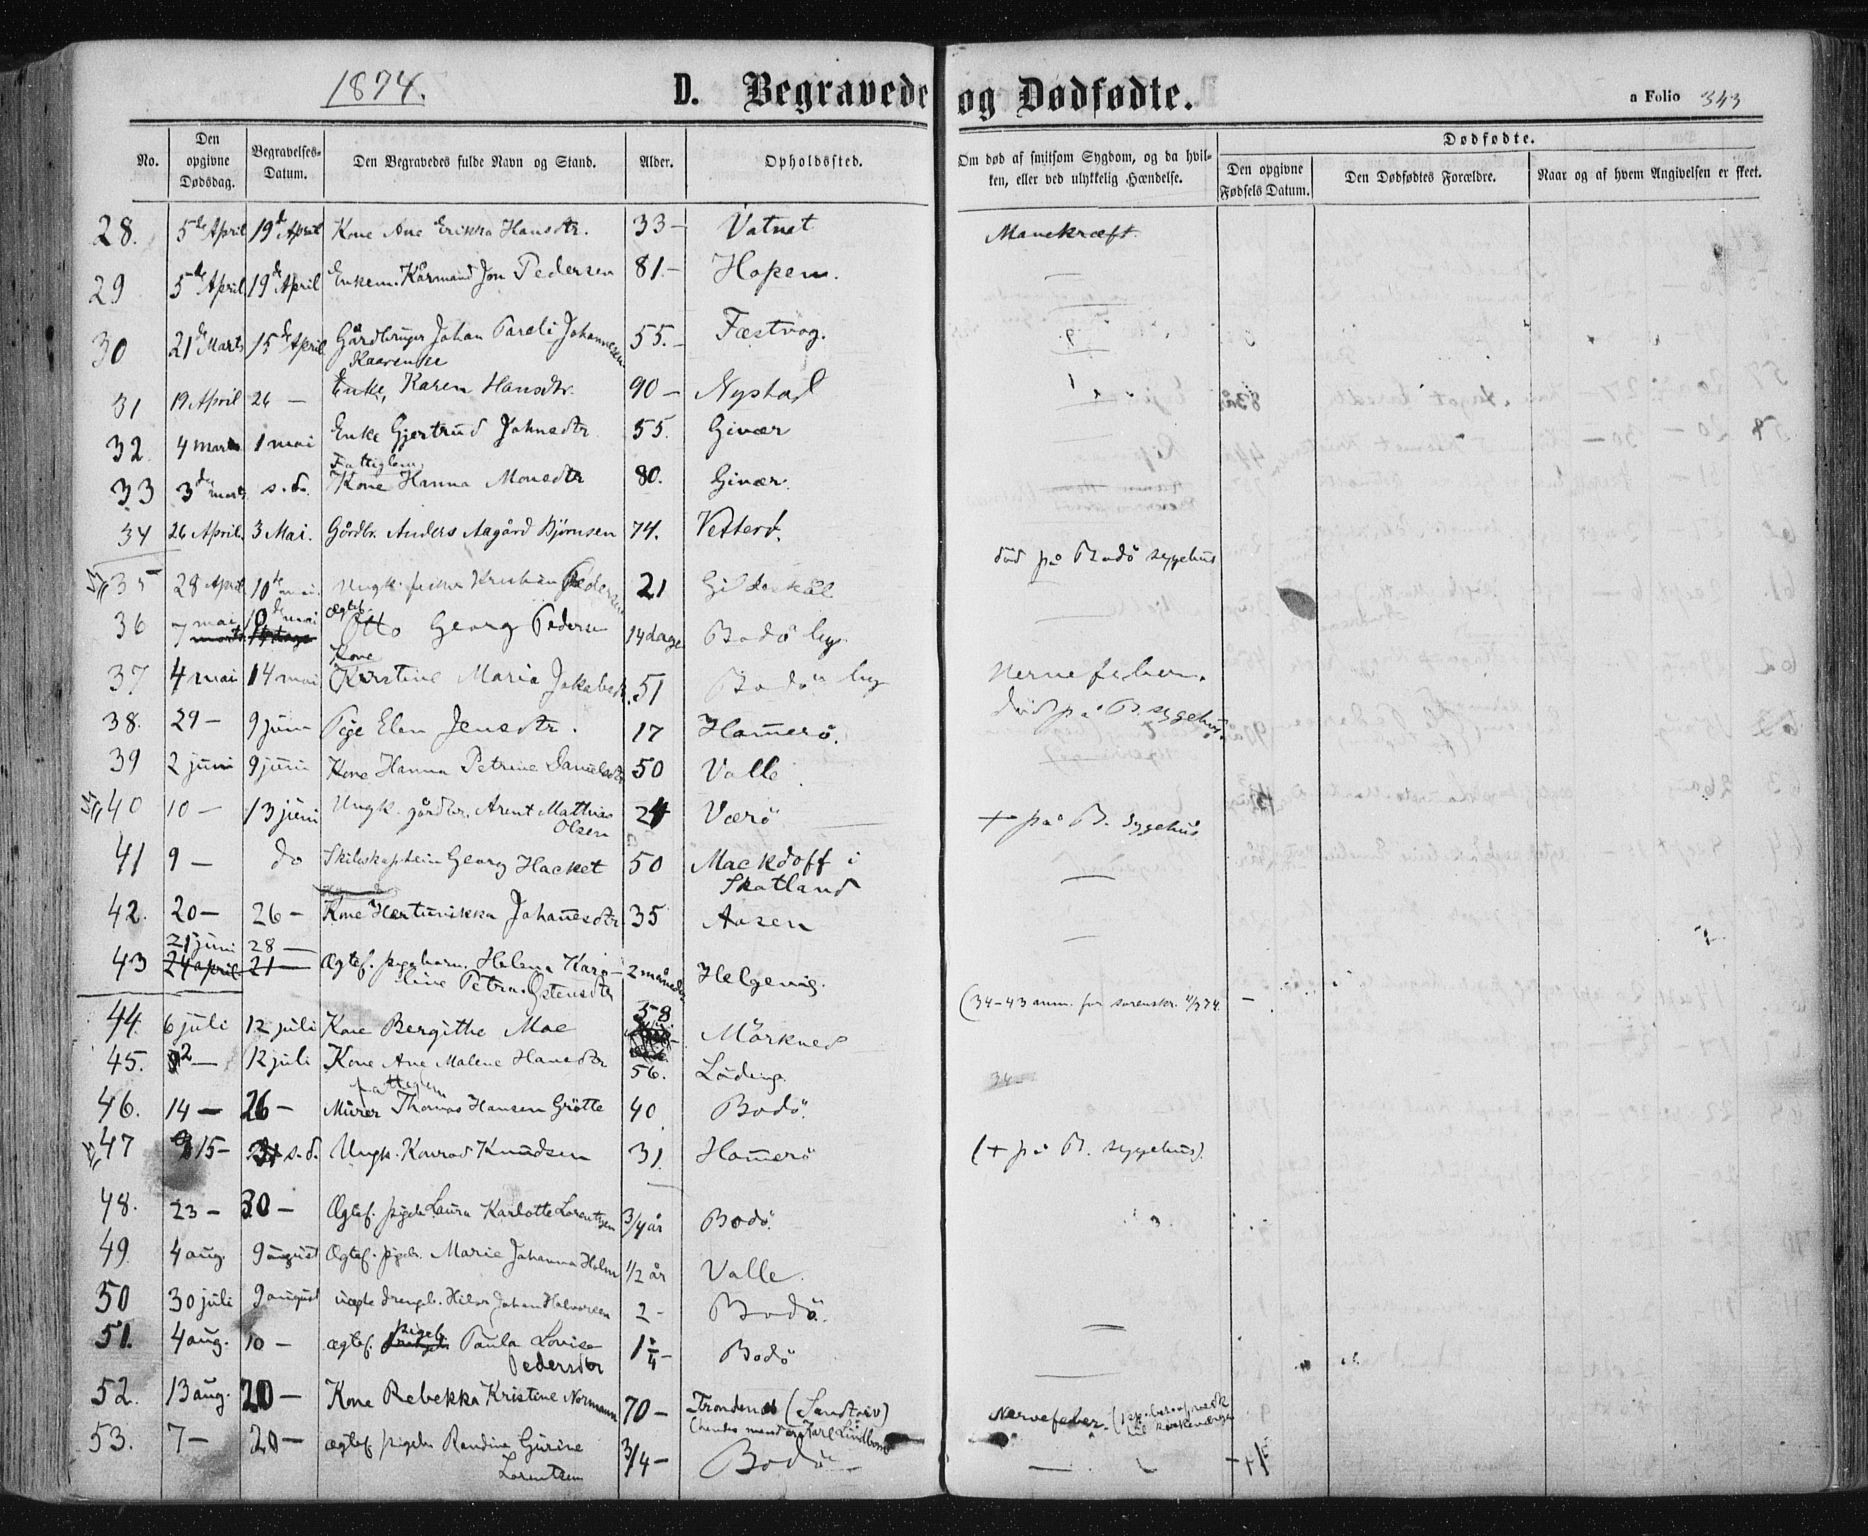 1874.
D. Begravede og Dødfødte.
a Folio 343
No.
Den opgivne Dødsdag.
Begravelses-Datum.
Den Begravedes fulde Navn og Stand.
Alder.
Opholdssted.
Om død af smitsom Sygdom, og da hvilken, eller ved ulykkelig Hændelse.
Dødfødte.
Den opgivne Fødsels Datum.
Den Dødfødtes Forældre.
Naar og af hvem Angivelsen er skeet.
28. 5de April 19de April Kone Ane Erikka Hansdtr. 33 - Vatnet
29 5de April 19de April Enkem. Kårmand Jon Pedersen 81.- Hopen.
30 21de Marts 15de April Gårdbruger Johan Pareli Johannesen 55.- Fæstvog.
31 19 April 26 - Enke, Karen Hansdtr. 90 - Nystad
32. 4 marts 1 mai Enke Gjertrud Johnsdtr 55. Givær
Fattiglem
33 3de marts s.d. Kone Hanna Monsdtr 80. Givær.
34 26 April. 3 Mai. Gårdbr. Anders Aagård Bjørnsen 74.
død på Bodö sygehus
35 28 April 10de mai. Ungk. Kristian Pedersen 21 Gildeskål
36 7 mai 10de mai Ægtef. Otto Georg Pedersen 14 dage Bodö by.
Kone
37 4 mai 14 mai Kirstine Maria Jakobsdtr. 51 Bodö by Nervefeber.
38. 29 - 9 juni Pige Elen Jensdtr. 17 Hamerö. död på B. sygehus.
39 2 juni 9 juni Kone Hanna Petrine Danielsdtr 50 Valle
40 10 - 13 juni Ungk. gårdbr. Arent Mathias Olsen 24 Værö + på B. sygehus
41 9 - do Skibskaptein Georg Hacket 50 Mackdoff i Skotland
42. 20 - 26 - Kone Johanesdtr. 35 Aasen
21 juni 28 -
43 24 april 21 - Ægtef. pigebarn. Helena Karoline Petra Östensdtr 2 måneder Helgevig.
(34-43 anm. for sorenskr. 4/7 74.
44. 6 juli 12 juli Kone Bergithe Moe 58 Mörkned
45. 2 - 12 juli Kone Ane Malene Hansdtr 56. Löding
fattiglem
46. 14 - 26 - Mürer Thomas Hansen Grötte 40. Bodö.
47 15 - s.d. Ungk. Konrad Knudsen 31. Hamerö (+ på B. sygehus).
48. 23 - 30 - Ægtef. pigeb. Laura Karlotte Lorentzen 3/4 år Bodö.
49. 4 aug. 9 august Ægtef. pigeb. Marie Johanna Holm 1/2 år Valle.
50 30 juli 9 august uægte drengeb. Hilor Johan Halvorsen 2 - Bodö.
51. 4 aug. 10 - ægtef. pigeb. Paula Lovise Pedersdtr 1 1/4 - Bodö
52. 13 aug. 20 - Kone Rebekka Kristine Normann 70 - Trondenæs (Sandtorv) Nervefeber.
53. 7 - 20 - ægtef. pigebr. Randine Gurine Lorentzen 3/4 - Bodö